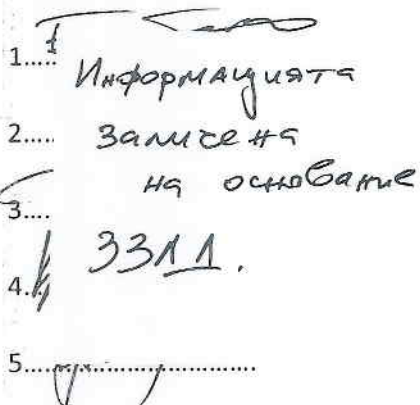 1.....
Информацията
2..... заличена
на основание
3....
ЗЗЛД.
4...
5..................................